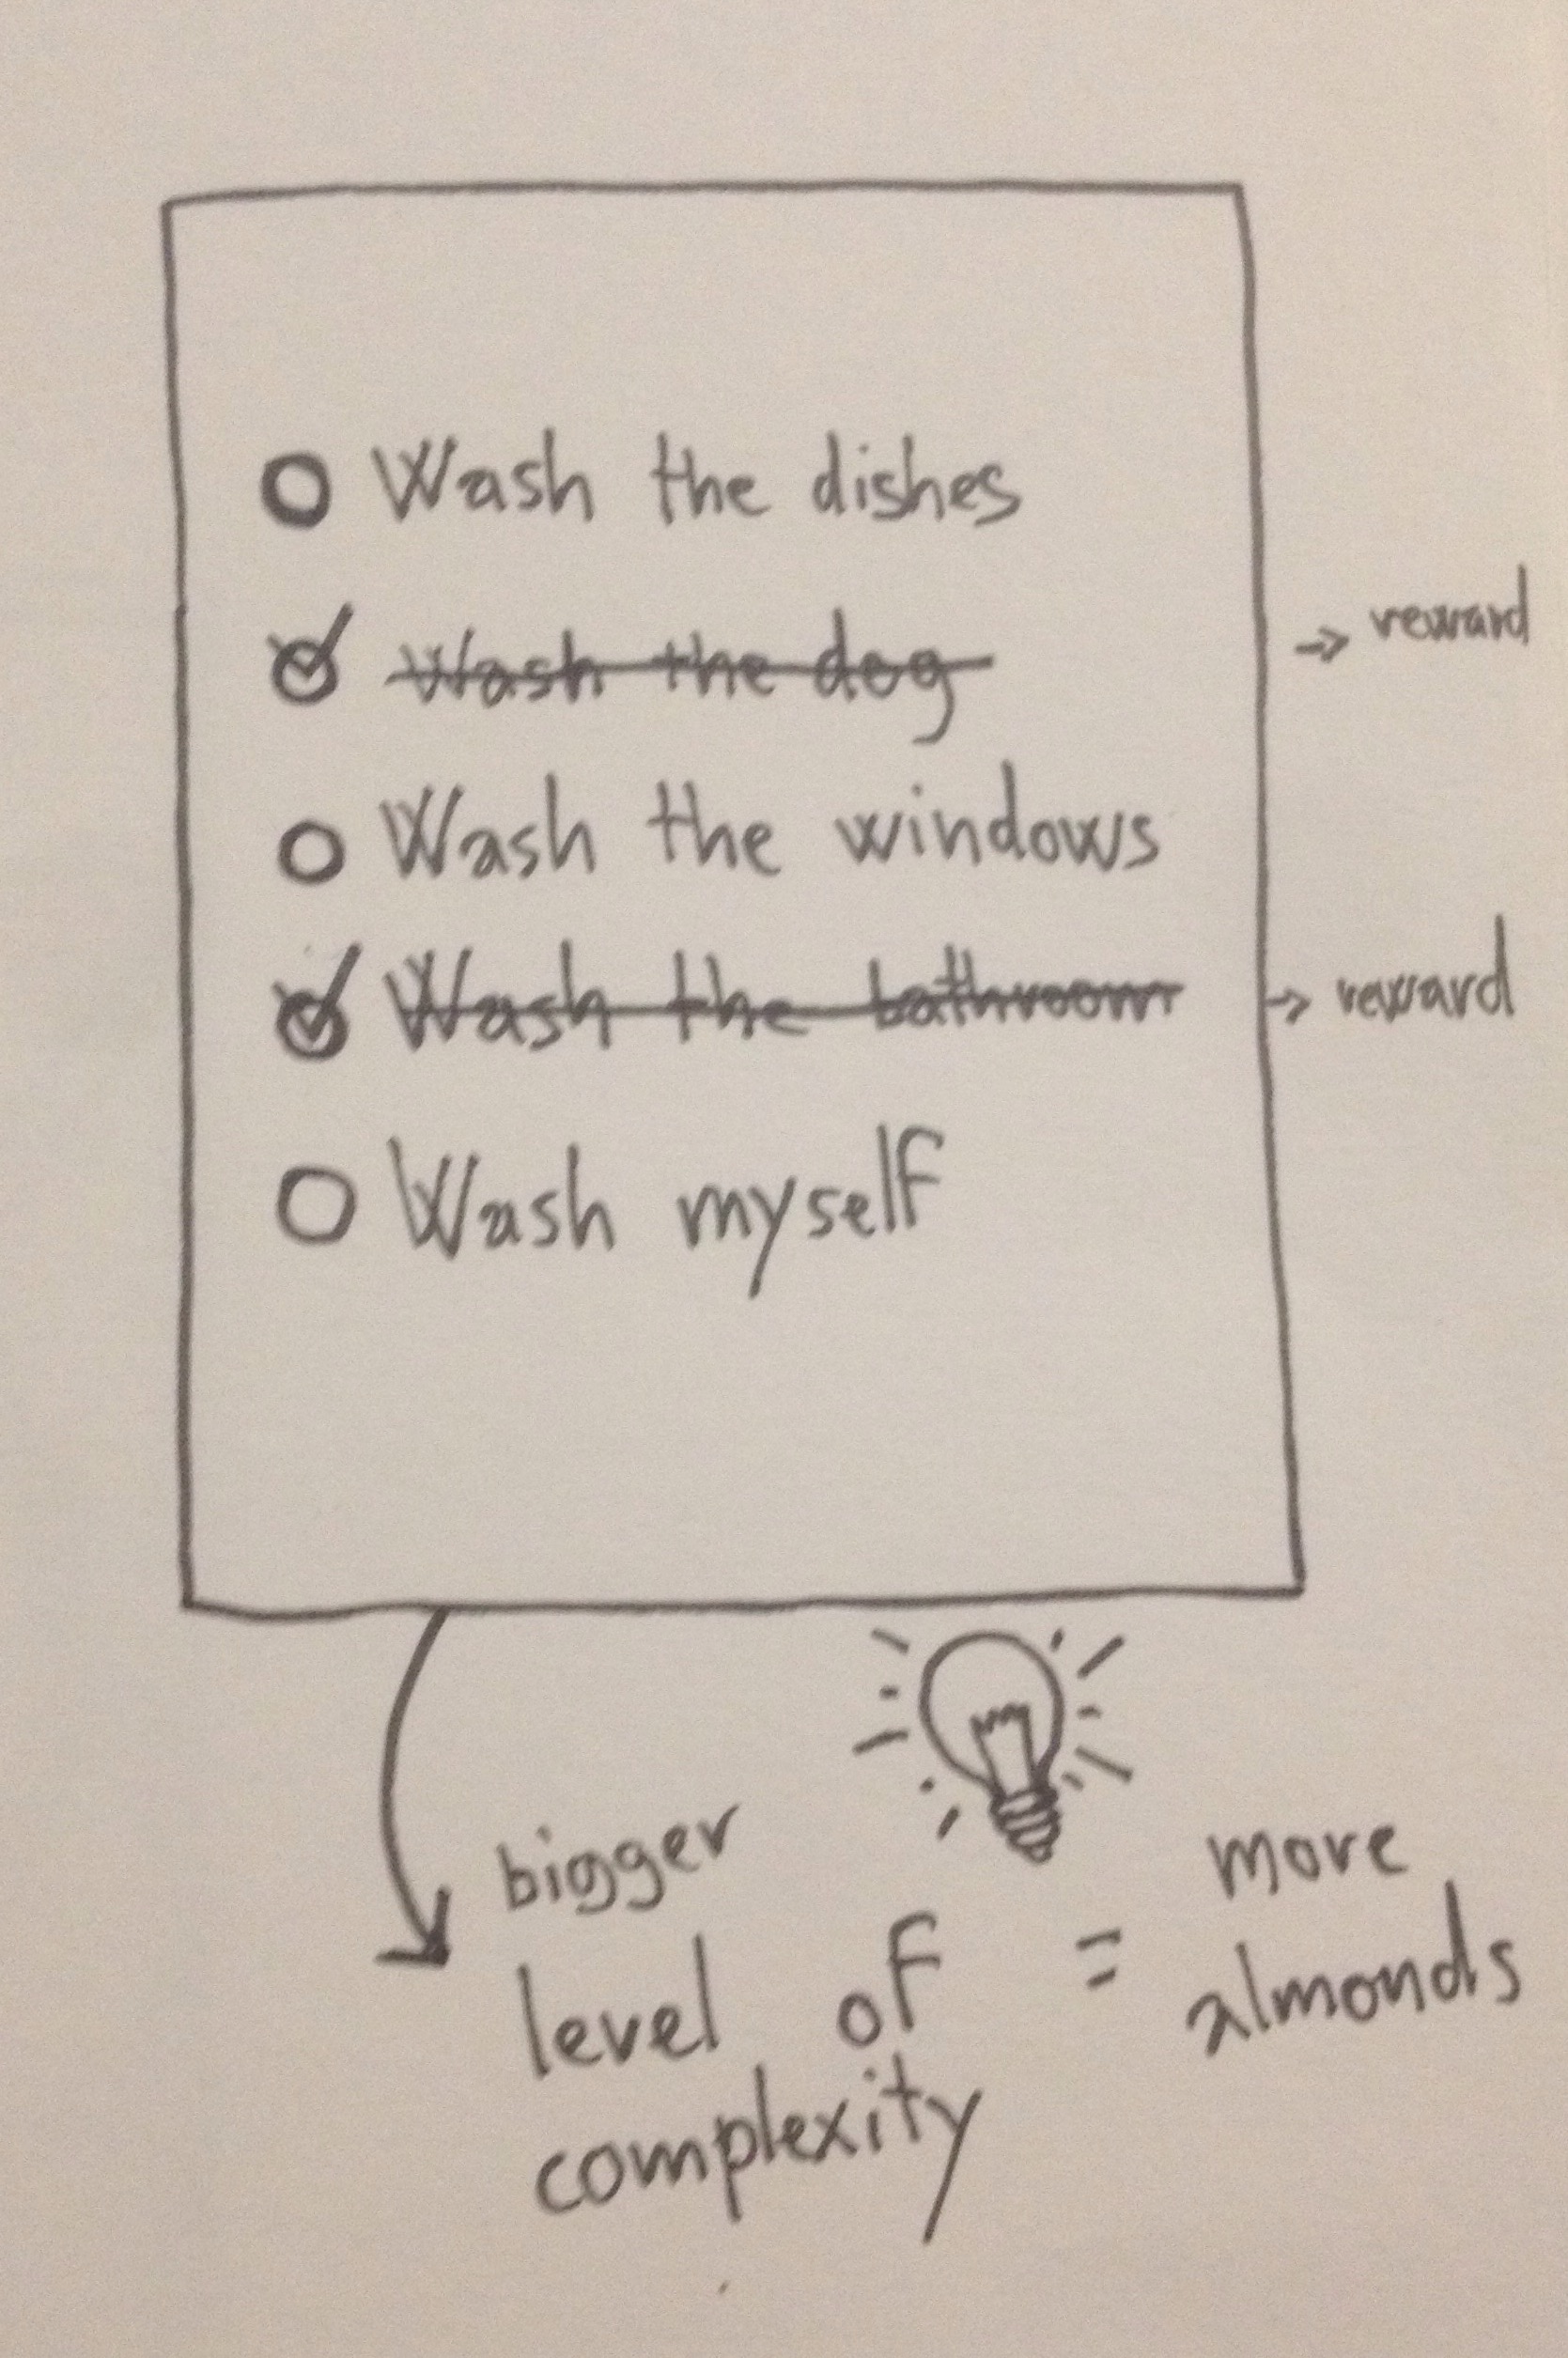 Wash the dishes
Wash the dog → reward
Wash the windows
Wash the bathroom → reward
Wash myself
bigger
level of
complexity
= more
almonds